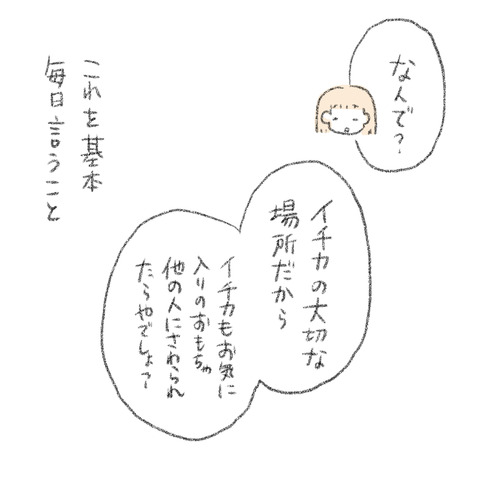 なんで?
イチカの大切な
場所だから
イチカもお気に
入りのおもちゃ
他の人にさわられ
たらやでしょ?
これを基本
毎日言うこと